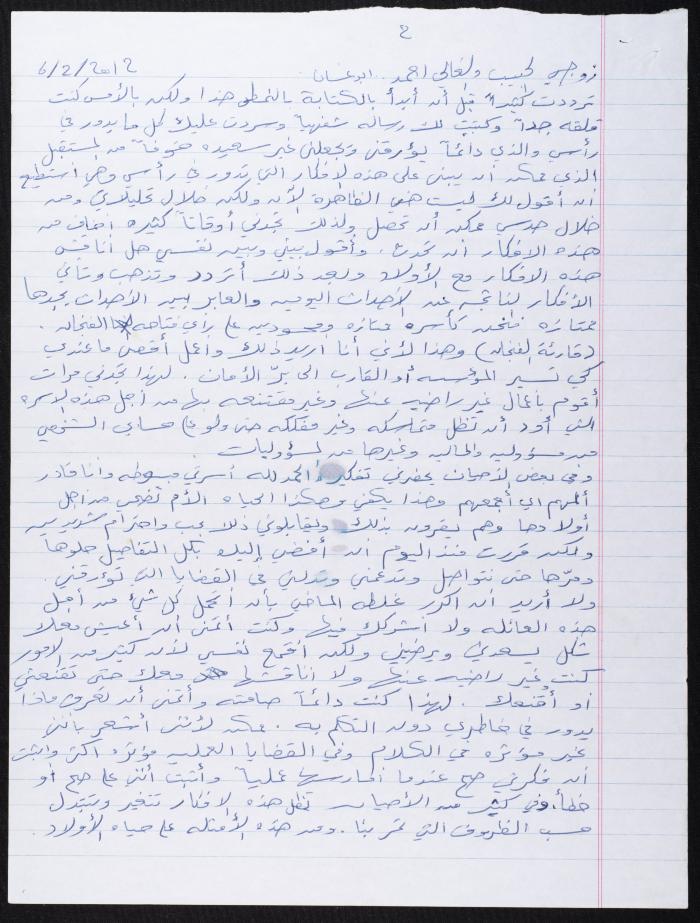 ٢
زوجي الحبيب والغالي احمد. ابو غسان 6/2/2012
ترددت كثيراً قبل أن أبدأ بالكتابة بالنمط هذا ولكن بالأمس كنت
قلقه جداً وكتبت لك رساله شفهياً وسردت عليك كل ما يدور في
رأسي والذي دائماً يؤرقني ويجعلني غير سعيده خوفاً من المستقبل
الذي ممكن أن يبنى على هذه الافكار التي تدور في رأسي وهي استطيع
أن أقول لك ليست هي الظاهرة الآن ولكن خلال تحليلاتي ومن
خلال حدسي ممكن أن تحصل ولذلك تجدني أوقاتاً كثيره اخاف من
هذه الافكار ان تحدث. وأقول بيني وبين نفسي هل أناقش
هذه الافكار مع الأولاد وبعد ذلك أتردد وتذهب وتأتي
الأفكار الناتجه عن الأحداث اليوميه والعابر بين الأحداث يجدها
ممتازه فنحن كأسره ممتازه ومحسودين على رأي فتاحه الفنجان.
(قارئة الفنجان) وهذا لأني أنا اريد ذلك واعمل أقصى ما عندي
كي تسير المؤسسه أو القارب الى برّ الأمان. لهذا تجدني مرات
أقوم بأعمال غير راضيه عنها وغير مقتنعه بها من أجل هذه الاسره
التي أود أن تظل متماسكه وغير مفككه حتى ولو على حسابي الشخصي
من مسؤوليه والماليه وغيرها من المسؤوليات.
وفي بعض الأحيان يحضرني تفكير الحمد لله أسرتي مبسوطه وأنا قادر
ألمهم اي أجمعهم وهذا يكفي وهكذا الحياه الأم تضحي من أجل
أولادها وهم يقرون بذلك ويقابلوني ذلك بحب واحترام شديدين
ولكن قررت منذ اليوم أن أفضي إليك بكل التفاصيل حلوها
ومرّها حتى نتواصل وتدعمني وتدلني في القضايا التي تؤرقني
ولا أريد ان اكرر غلطه الماضي بأن أتحمل كل شيء من أجل
هذه العائله ولا اشركك فيها وكنت أتمنى أن أعيش معك
شكل يسعدني ويرضيني ولكن أقمع نفسي لأن كثير من الامور
كنت غير راضيه عنها ولا اناقشها معك حتى تقنعني
او أقنعك. لهذا كنت دائماً صامته وأتمنى أن تعرف ماذا
يدور في خاطري دون التكلم به. ممكن لأنني أشعر بأنني
غير مؤثره في الكلام وفي القضايا العمليه مؤثره اكثر واثبت
ان فكرتي صح عندما امارسها عملياً وأثبت أنني على صح او
خطأ. وفي كثير من الأحيان تظل هذه الافكار تتغير وتتبدل
حسب الظروف التي تمر بنا. ومن هذه الأمثله على حياه الأولاد.